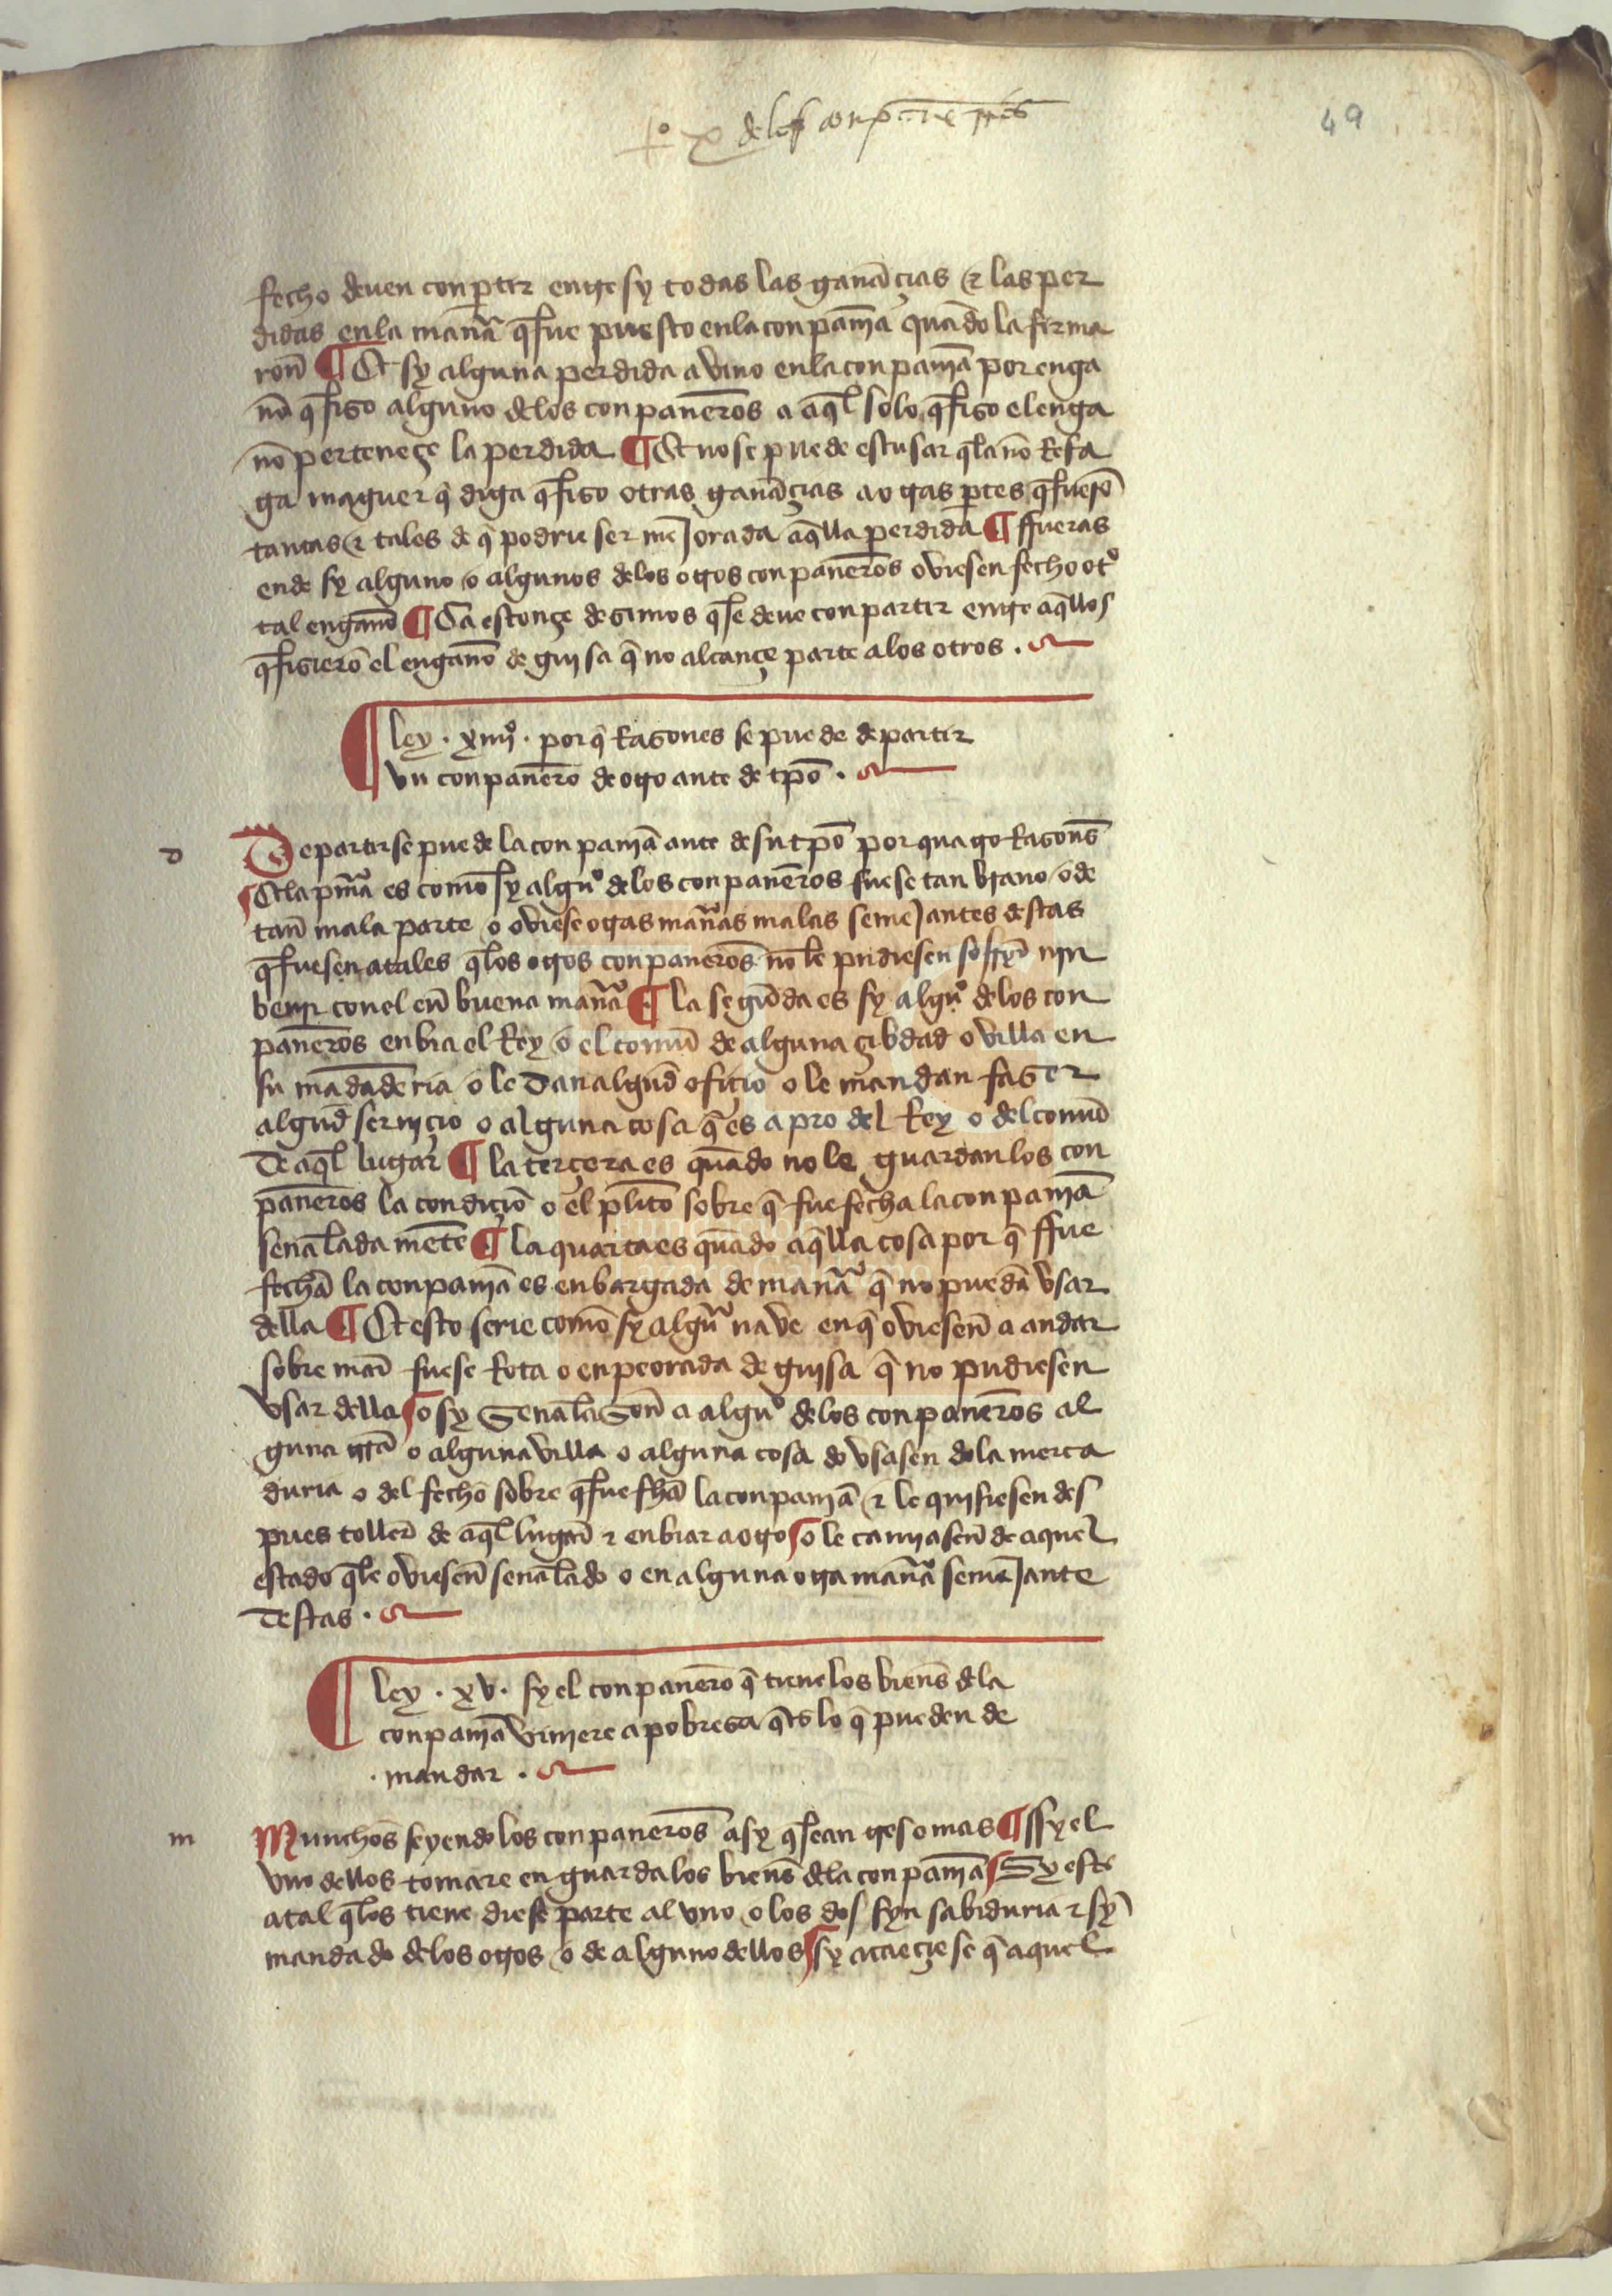 tº x de los conpaneros
49
fecho deuen conpartir entre sy todas las ganãçias & las per
didas en la manã q̃ fue puesto en la conpañia quãdo la firma
ron ¶ Et sy alguna perdida avino en la conpañia por enga
nõ q̃ fiso alguno delos conpaneros a aq̃l solo q̃ fiso el enga
nõ perteneçe la perdida ¶ Et no se puede escusar q̃ la nõ Refa
ga maguer q̃ diga q̃ fiso otras ganãçias a otras ptes q̃ fuesẽ
tantas & tales de q̃ podrie ser mejorada aq̃lla perdida ¶ ffueras
ende sy alguno o algunos delos otros conpaneros oviesen fecho otº
tal engano ¶ Ca estonçe desimos q̃ se deue conpartir entre aq̃llos
q̃ fisierõ el engano de guisa q̃ no alcançe parte alos otros .
¶ ley . xiiijº . por q̃ Rasones se puede departir
vn conpanero de otro ante de tpõ .
d
Departir se puede la conpañia ante de su tpõ por quatro Rasones
Et la pmã es como sy algunº delos conpaneros fuese tan brauo o de
tan mala parte o oviese otras manas malas semejantes destas
q̃ fuesen atales q̃ los otros conpaneros no le pudiesen sofrir nin
beuir con el en buena manã ¶ la segũda es sy algunº delos con
paneros enbia el Rey o el comũ de alguna çibdad o villa en
su mãdaderia o le dan algund ofiçio o le mandan faser
algund seruiçio o alguna cosa q̃ es a pro del Rey o del comũ
de aq̃l lugar ¶ la terçera es quãdo no le guardan los con
paneros la condiçiõ o el plito sobre q̃ fue fecha la conpañia
senalada mẽte ¶ la quarta es quãdo aq̃lla cosa por q̃ ffue
fecha la conpañia es enbargada de manã q̃ no puedã vsar
della ¶ Et esto serie como sy algũa naue en q̃ oviesen a andar
sobre mar fuese Rota o enpeorada de guisa q̃ no pudiesen
vsar della o sy senalason a algunº delos conpaneros al
guna trã o alguna villa o alguna cosa do vsasen dela merca
duria o del fecho sobre q̃ fue fhã la conpañia & le quisiesen des
pues toller de aq̃l lugar & enbiar a otro o le camiasen de aquel
estado q̃ le oviesen senalado o en alguna otra manã semejante
destas .
¶ ley . xv . sy el conpanero q̃ tiene los bienes dela
conpañia viniere a pobresa q̃ es lo q̃ pueden de
mandar .
m
Munchos seyendo los conpaneros asy q̃ sean tres o mas ¶ ssy el
vno dellos tomare en guarda los bienes dela conpañia Sy este
atal q̃ los tiene diese parte al vno o los dos syn sabiduria & syñ
mandado delos otros o de alguno dellos sy acaeçiese q̃ aquel